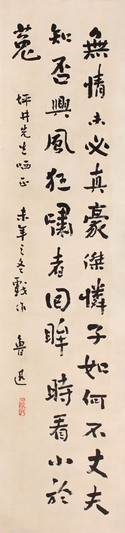 無情未必真豪傑憐子如何不丈夫
知否興風狂嘯者回眸時看小於
菟
坪井先生哂正
未年之冬戲作 魯迅